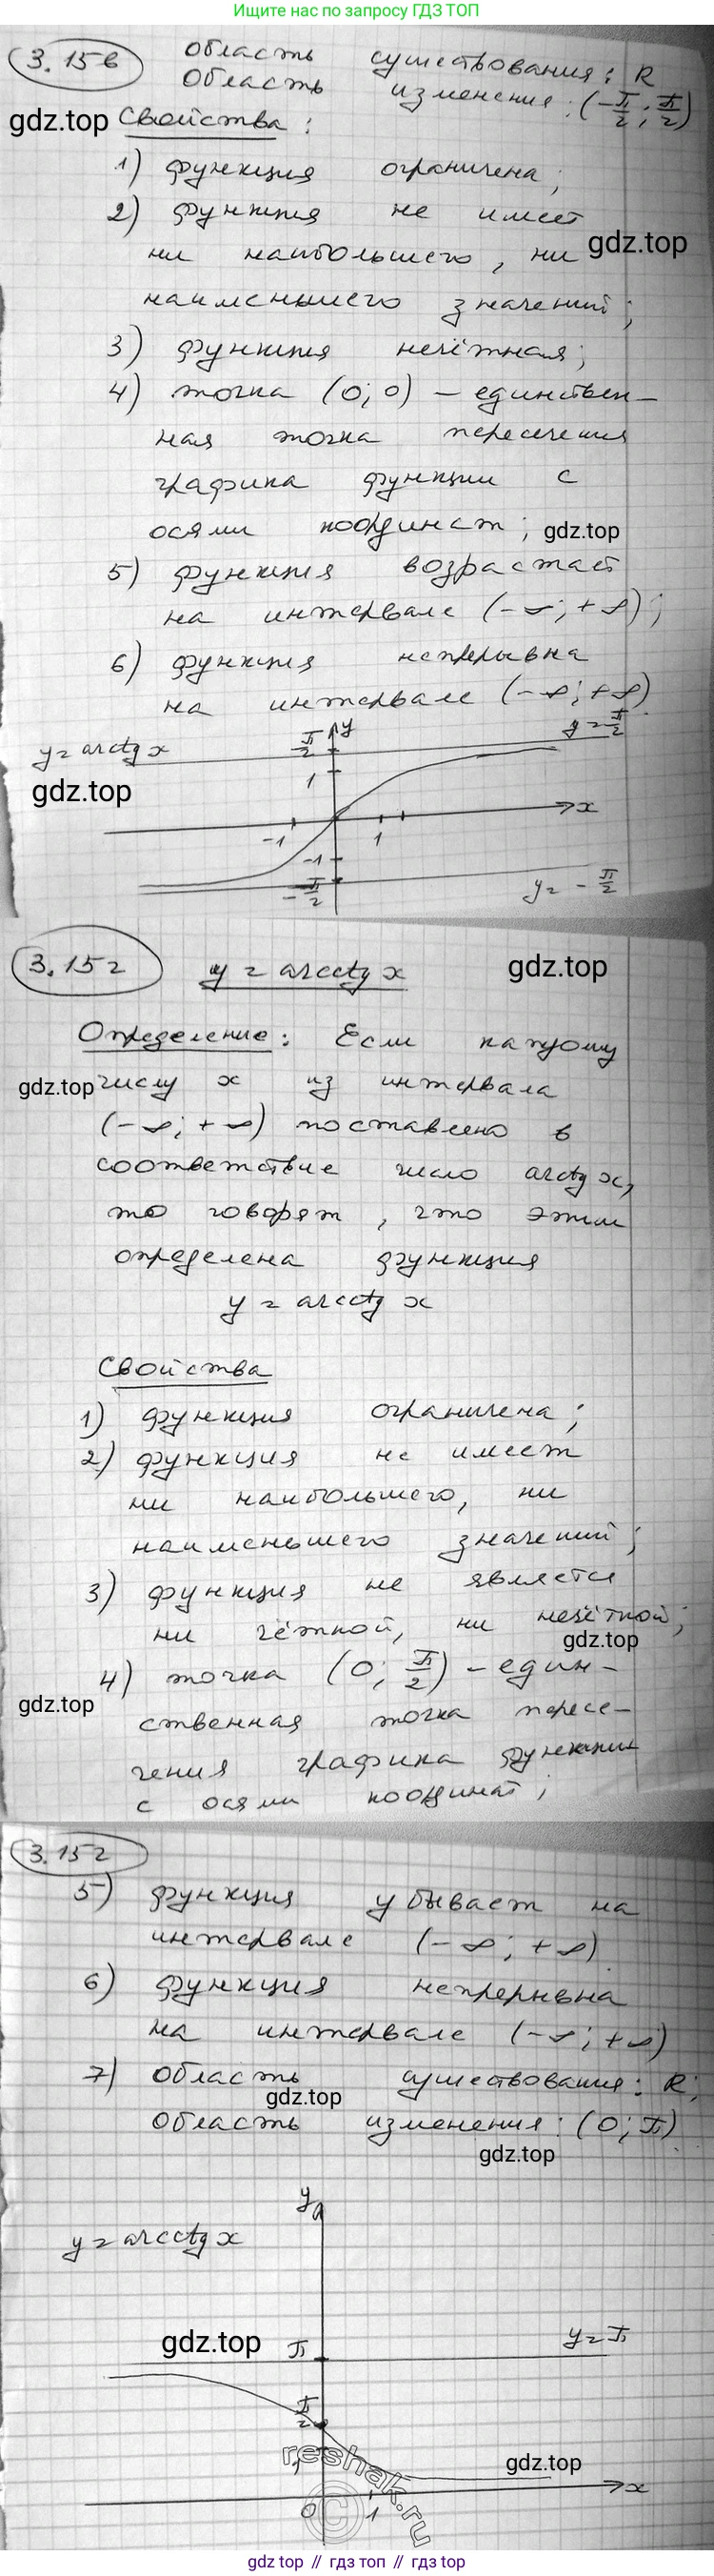 Ищите нас по запросу ГДЗ ТОП
3.15в
область существования: R
Область изменения: (-π/2; π/2)
gdz.top Свойства:
1) функция ограничена;
2) функция не имеет
gdz.top
ни наибольшего, ни
наименьшего значений;
3) функция нечётная;
4) точка (0; 0) – единствен-
ная точка пересечения
графика функции с
осями координат; gdz.top
5) функция возрастает
на интервале (-∞; +∞);
6) функция непрерывна
на интервале (-∞; +∞)
y = arctg x
π/2 y
y = π/2
gdz.top
1
x
-1 1
-1
-π/2
y = -π/2
3.15г y = arcctg x gdz.top
Определение: Если каждому
gdz.top числу x из интервала
(-∞; +∞) поставлено в
соответствие число arcctg x,
то говорят, что этим
определена функция
y = arcctg x
Свойства
1) функция ограничена;
2) функция не имеет
ни наибольшего, ни
наименьшего значений;
3) функция не является
ни чётной, ни нечётной;
gdz.top
4) точка (0; π/2) – един-
gdz.top
ственная точка пересе-
чения графика функции
с осями координат;
3.15г
5) функция убывает на
интервале (-∞; +∞)
6) функция непрерывна
на интервале (-∞; +∞)
7) область существования: R;
gdz.top
область изменения: (0; π)
gdz.top
y
y = arcctg x
gdz.top
π
y = π
π/2
1
reshak.ru
gdz.top
x
0 1
©
gdz top // гдз топ // gdz.top